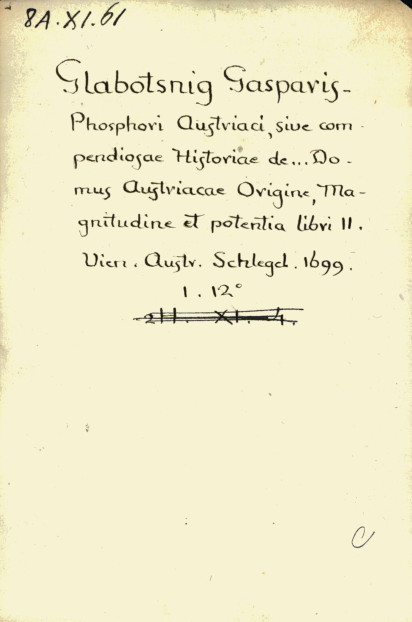 8A.XI.61
Glabotsnig Gasparis-
Phosphori Austriaci, sive com-
pendiosae Historiae de...Do-
mus Austriacae Origine, Ma-
gnitudine et potentia libri II.
Vien. Austr. Schlegel. 1699.
1. 12°
C